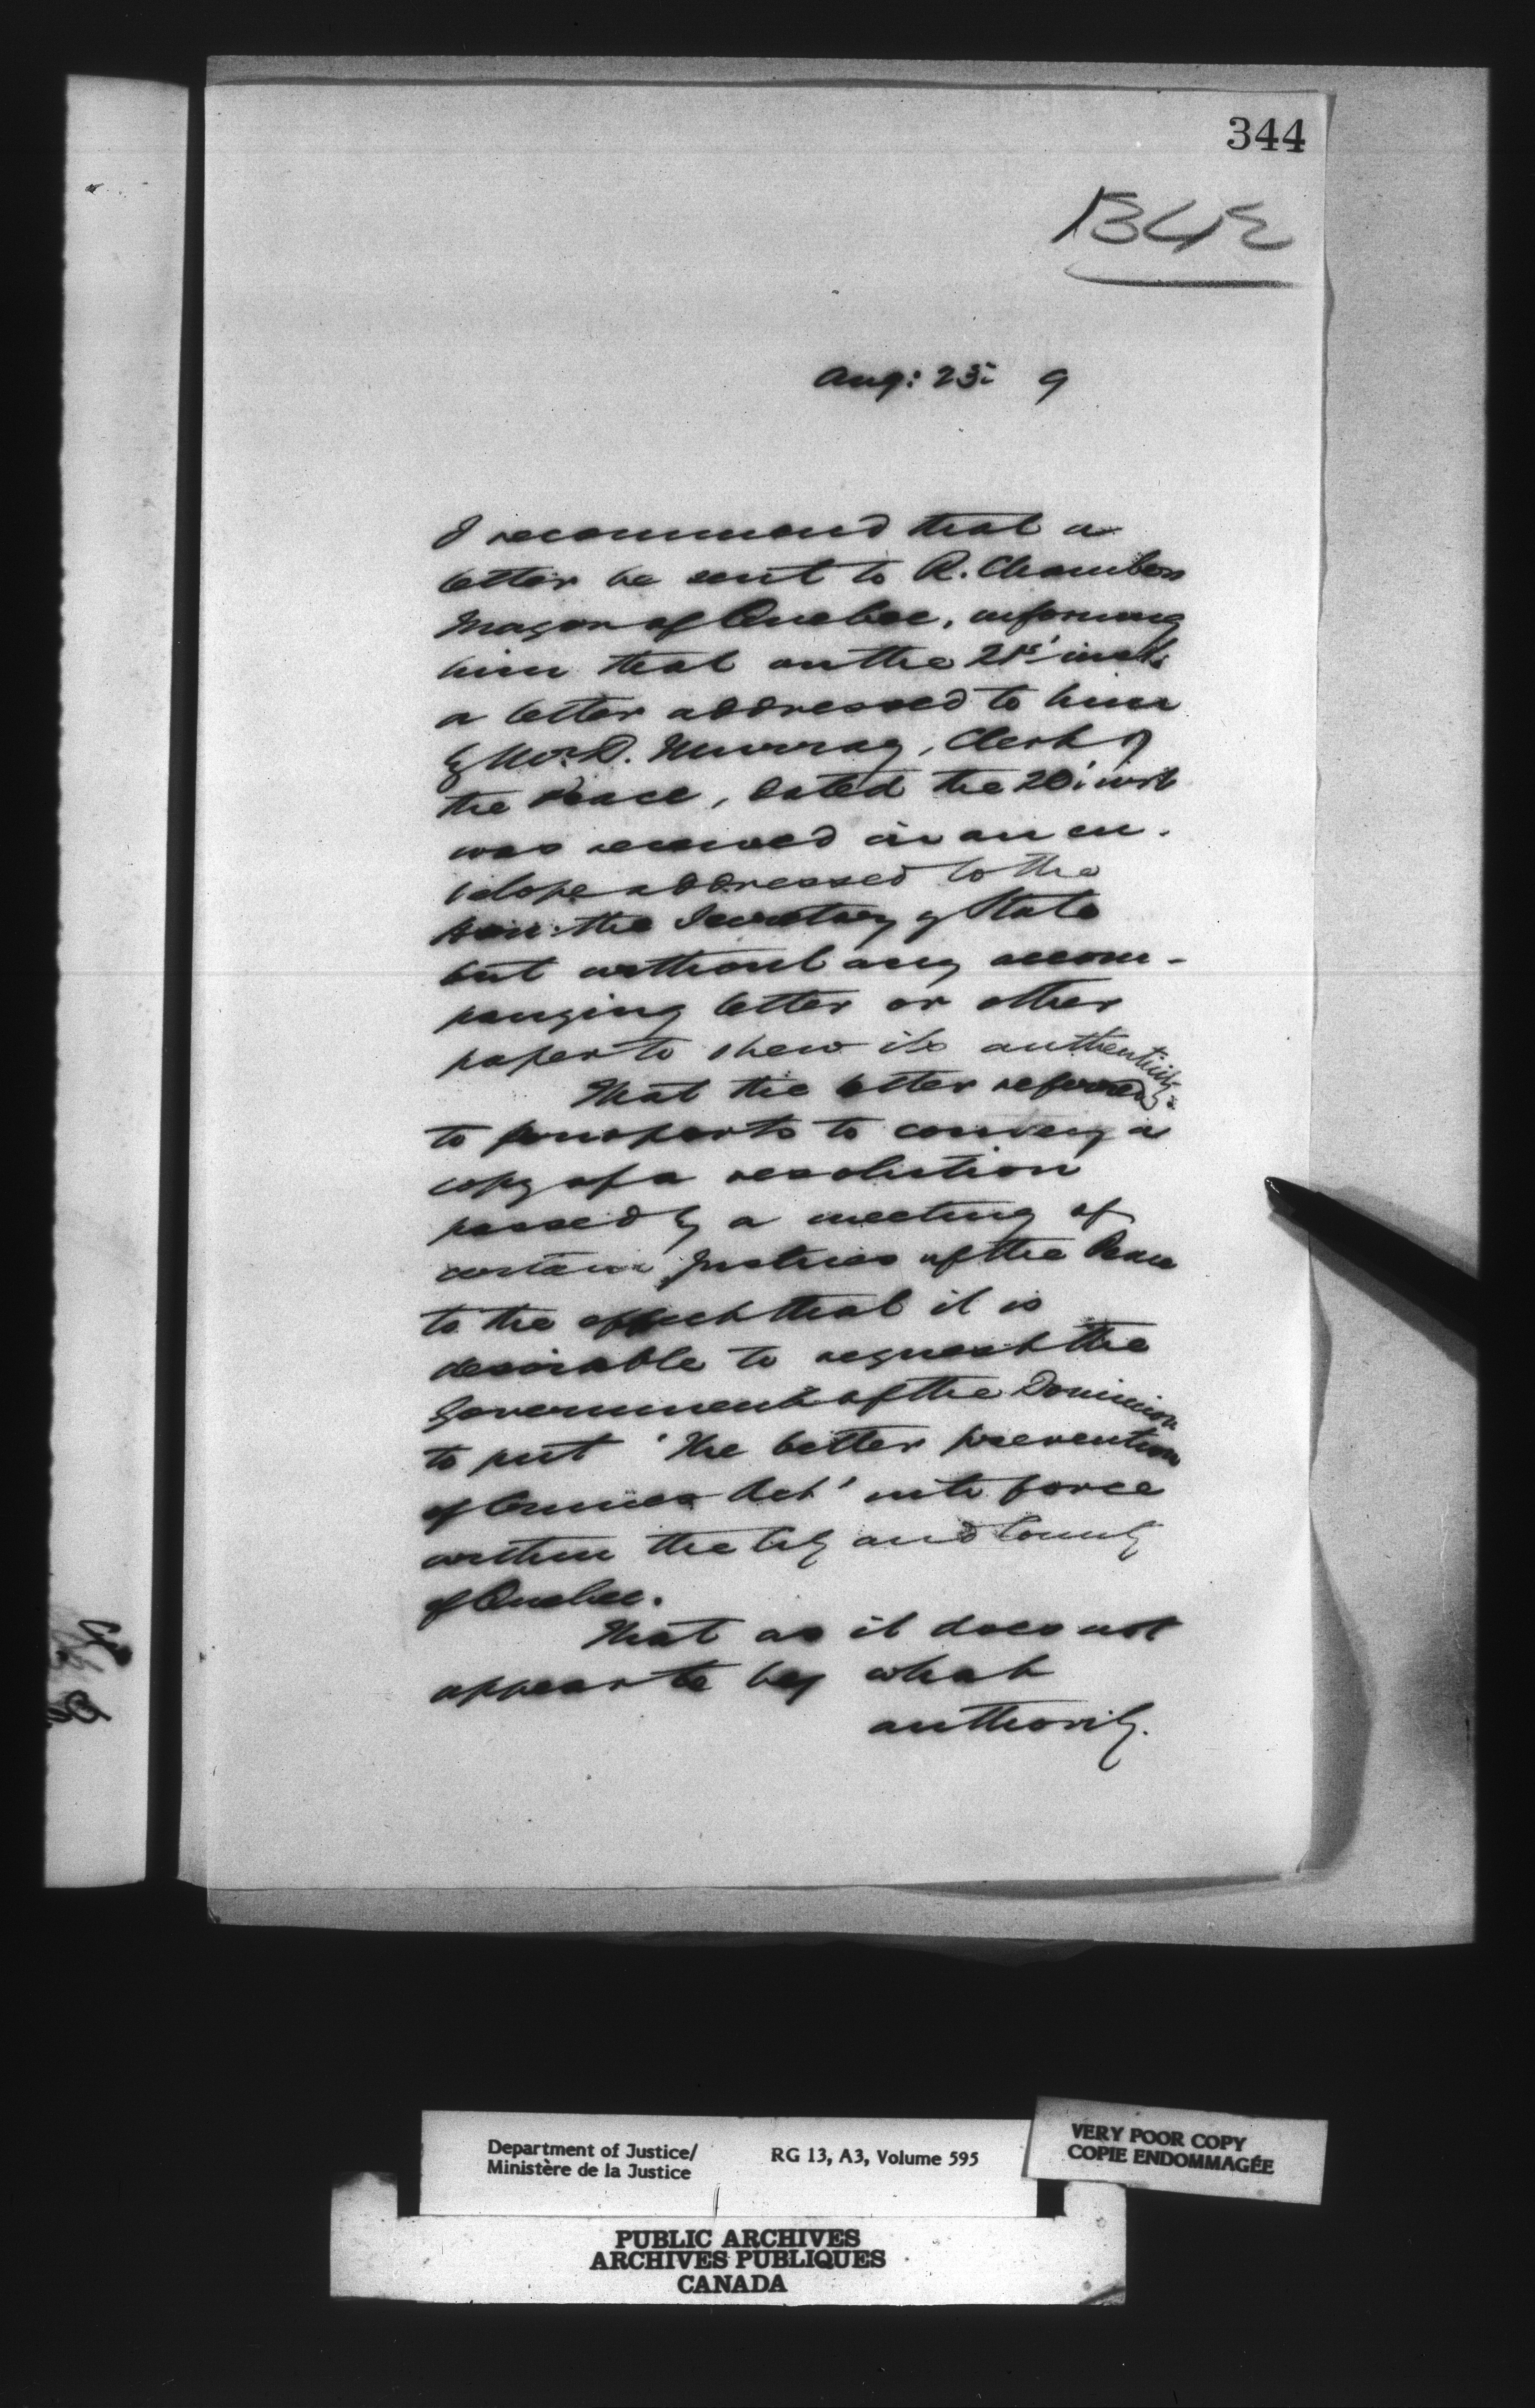 344
1342
Aug: 23: 9
I recommend that a
letter be sent to R. Chambers
Mayor of Quebec, informing
him that on the 21st inst.
a letter addressed to him
by W. D. Murray, Clerk of
the Peace, dated the 20' inst
was received in an en-
velope addressed to the
Hon: the Secretary of State
but without any accom-
panying letter or other
paper to shew its authenticity.
That the letter referred
to purports to convey a
copy of a resolution
passed by a meeting of
certain Justices of the Peace
to the effect that it is
desirable to request the
Government of the Dominion
to put 'The better prevention
of Crimes Act' into force
within the City and County
of Quebec.
That as it does not
appear to be by what
authority.
Department of Justice/
Ministère de la Justice
RG 13, A3, Volume 595
VERY POOR COPY
COPIE ENDOMMAGÉE
PUBLIC ARCHIVES
ARCHIVES PUBLIQUES
CANADA